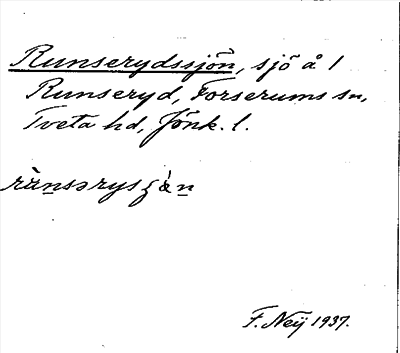 Runserydssjön, sjö å 1
Runseryd, Forserums sn,
Tveta hd, Jönk. l.
F. Neij 1937.